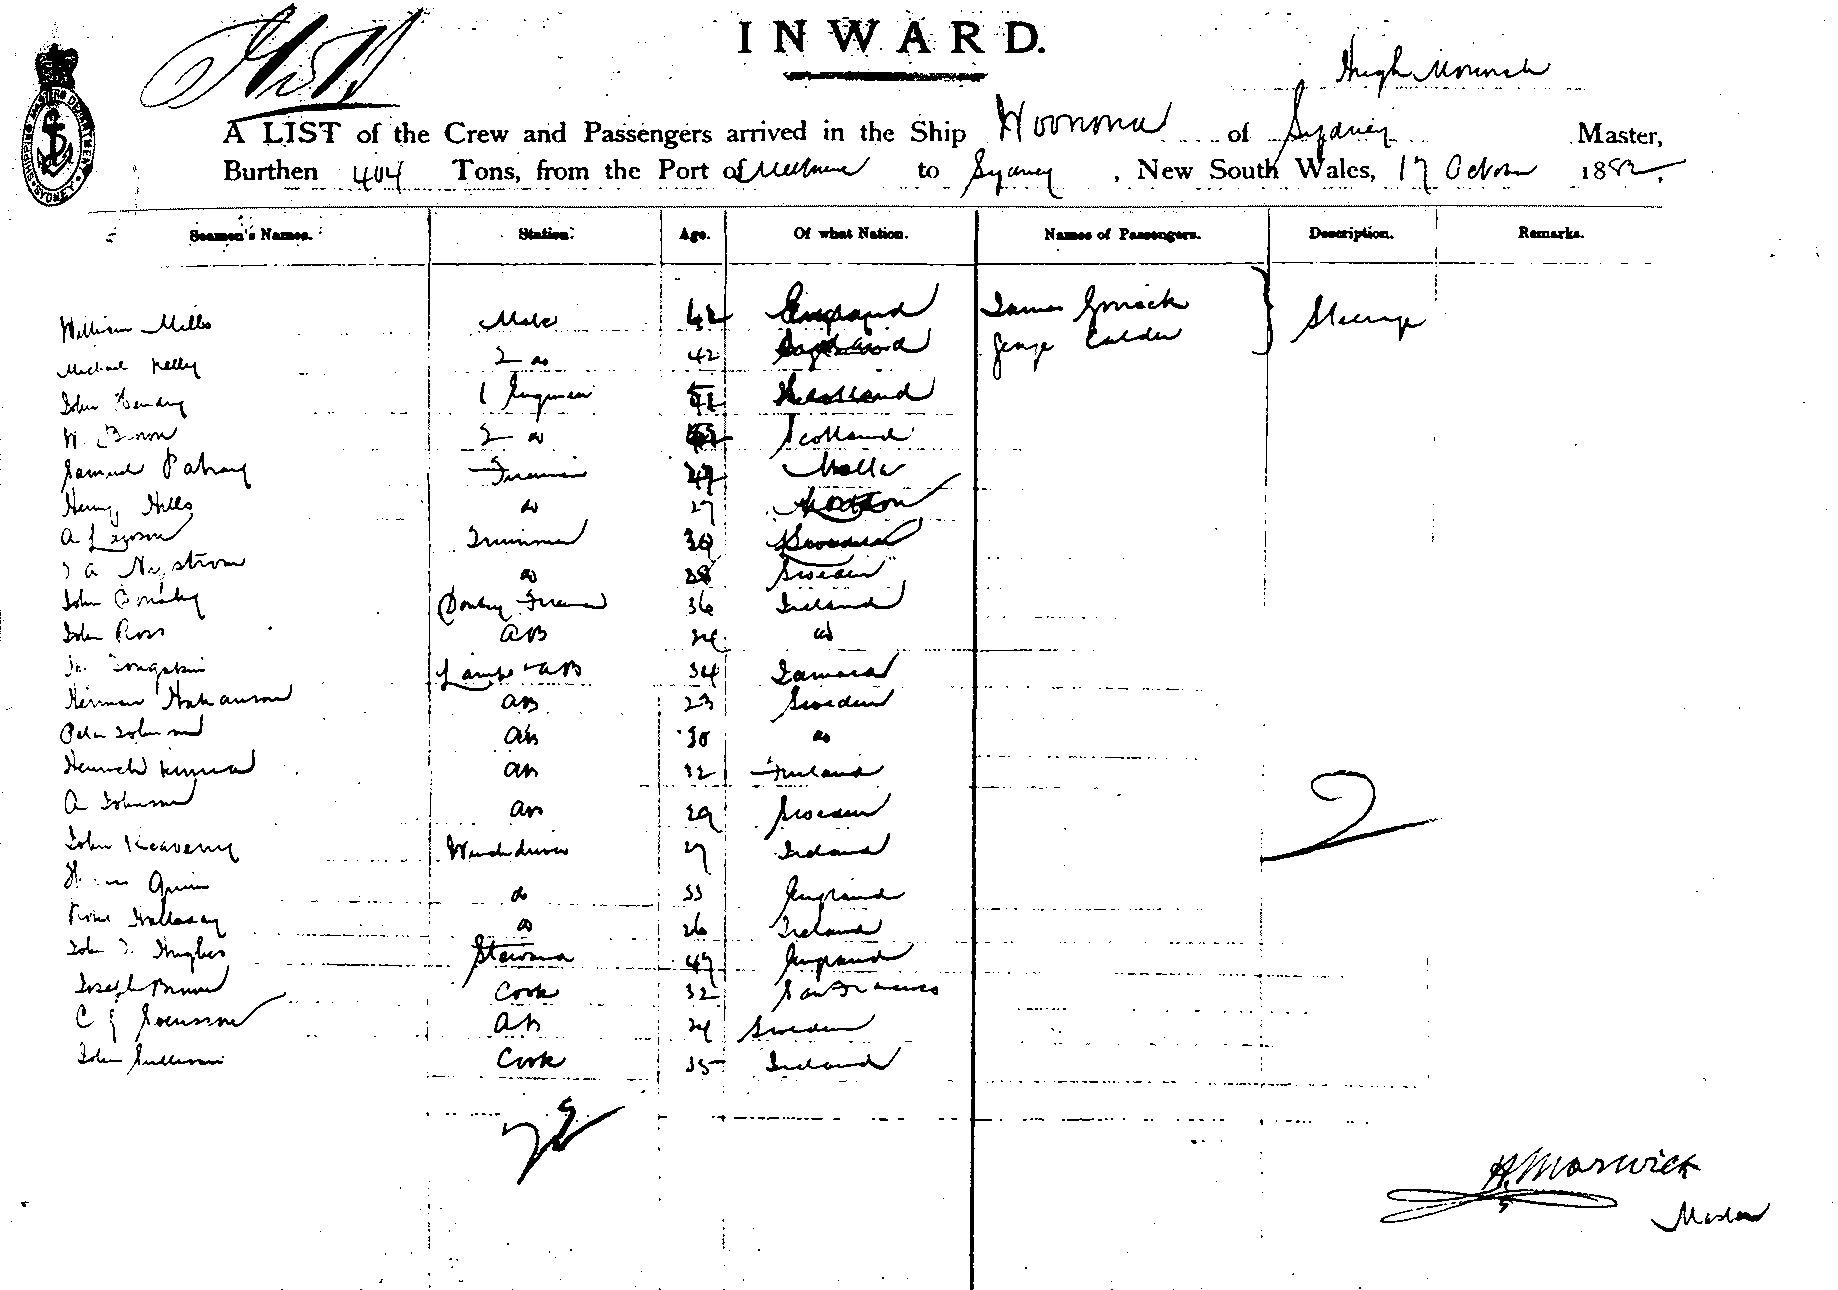 INWARD.
Hugh
A LIST of the Crew and Passengers arrived in the Ship Woonona of Sydney Master,
Burthen 404 Tons, from the Port of Melbourne to Sydney, New South Wales, 17 October 1882.
SHIPPING MASTERS DEPARTMENT SYDNEY
Seamen's Names. Station. Age. Of what Nation. Names of Passengers. Description. Remarks.
William Mills Mate 42 England James Steerage
Michael Kelly 2 do 42 England George Calder
John 1 Engineer Scotland
W. Brown 2 do Scotland
Samuel Fireman Malta
Henry Hills do 27
A Trimmer 30 Sweden
A Nystrom do 28 Sweden
John Donkey Fireman 36 Ireland
John Ross AB 24 do
Lamps & AB 34 Jamaica
Herman Hakanson AB 23 Sweden
Peter Johnson AB 30 do
AB 32 Finland
A Johnson AB 29 Sweden
John Keaveny Winchdriver 27 Ireland
Quinn do 33 England
Halladay do 26 Ireland
John T Hughes Steward 47 England
Joseph Brown Cook 32 San Francisco
C J AB 24 Sweden
John Sullivan Cook 35 Ireland
22
2
H. Marwick
Master